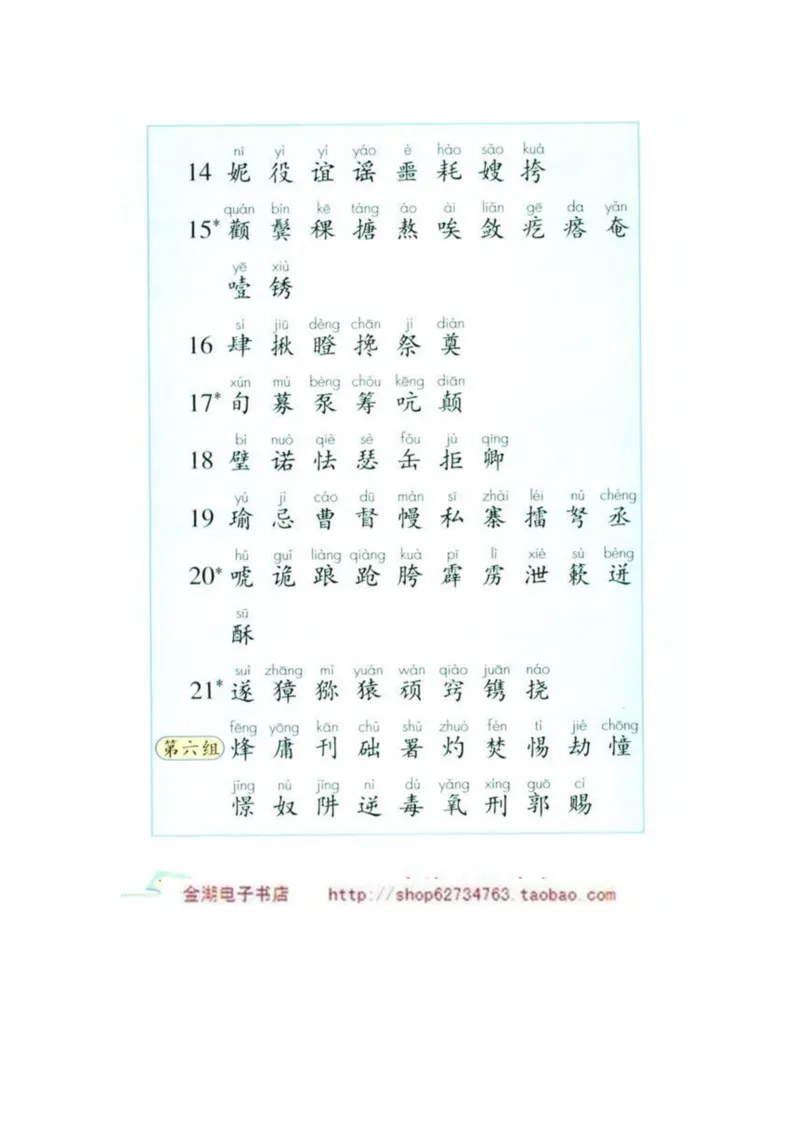 nī yì yì yáo è hào sǎo kuà
14 妮 役 谊 谣 噩 耗 嫂 挎
quán bìn kē táng áo ài liǎn gē da yǎn
15* 颧 鬓 稞 搪 熬 唉 敛 疙 瘩 奄
yē xiù
噎 锈
sì jiū dèng chān jì diàn
16 肆 揪 瞪 搀 祭 奠
xún mù bèng chóu kēng diān
17* 旬 募 泵 筹 吭 颠
bì nuò qiè sè fǒu jù qīng
18 璧 诺 怯 瑟 缶 拒 卿
yú jì cáo dū màn sī zhài léi nǔ chéng
19 瑜 忌 曹 督 幔 私 寨 擂 弩 丞
hǔ guǐ liàng qiàng kuà pī lì xiè sù bèng
20* 唬 诡 踉 跄 胯 霹 雳 泄 簌 迸
sū
酥
suì zhāng mí yuán wán qiào juān náo
21* 遂 獐 猕 猿 顽 窍 镌 挠
fēng yōng kān chǔ shǔ zhuó fén tì jié chōng
第六组 烽 庸 刊 础 署 灼 焚 惕 劫 憧
jǐng nú jǐng nì dú yǎng xíng guō cì
憬 奴 阱 逆 毒 氧 刑 郭 赐
金湖电子书店 http://shop62734763.taobao.com